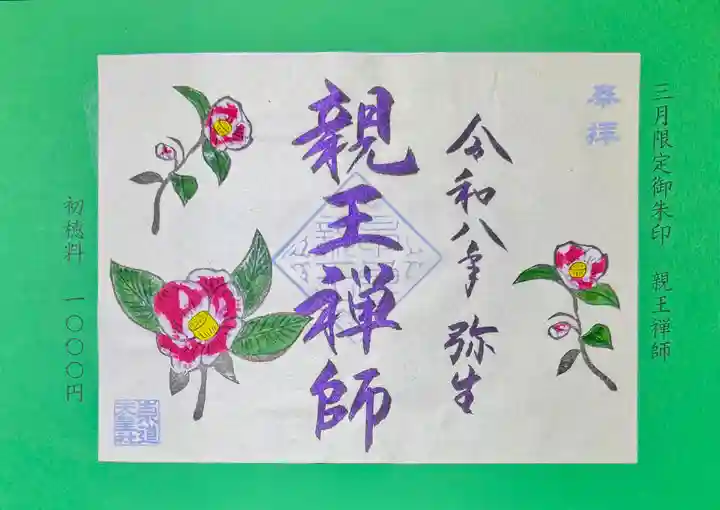 三月限定御朱印　親王禅師
奉拝
令和八年 弥生
親王禅師
崇道
天皇社
初穂料　一〇〇〇円